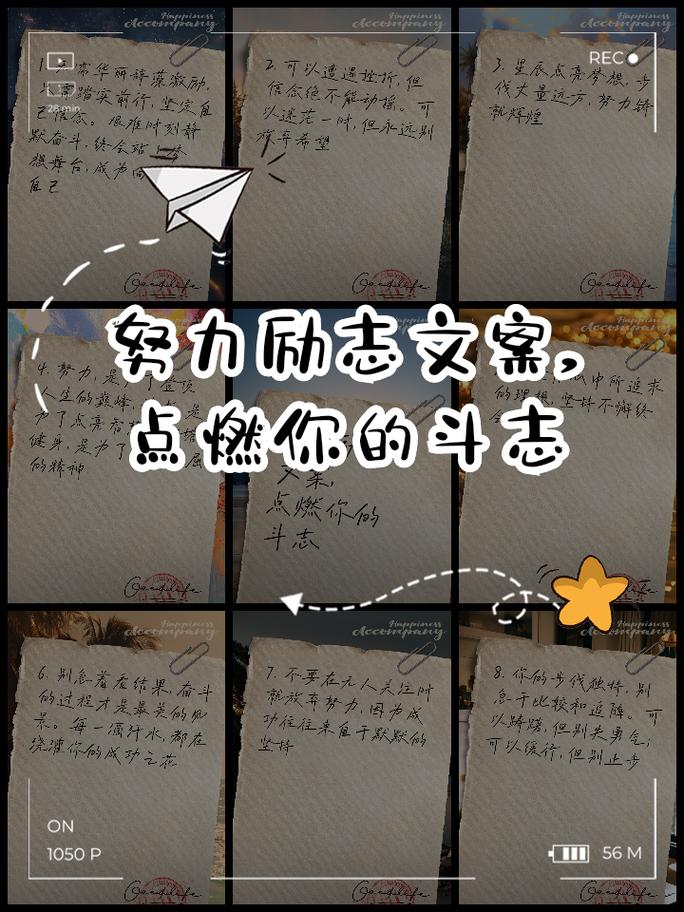 Happiness
Accompany
Happiness
Accompany
Happiness
REC
28 min
励,
以踏实前行,坚定自
己信念。艰难时刻静
默奋斗,终会站
想舞台,成为
自己
Goodlife
2.可以遭遇挫折,但
信念绝不能动摇。可
以迷茫一时,但永远别
放弃希望
Goodlife
3.星辰点亮梦想,步
伐丈量远方,努力铸
就辉煌
Goodlife
努力励志文案,
点燃你的斗志
4.努力,是
人生的巅峰
为了点亮
健身,是为了
的精神
Goodlife
文案,
点燃你的
斗志
中所追求
的理想,坚持不懈终
Happiness
Accompany
Happiness
Accompany
Happiness
Accompany
6.别急着看结果,奋斗
的过程才是最美的风
景。每一滴汗水,都在
浇灌你的成功之花
7.不要在无人关注时
就放弃努力,因为成
功往往来自于默默的
坚持
8.你的步伐独特,别
急于比较和追随。可
以踌躇,但别失勇气;
可以缓行,但别止步
ON
1050 P
56 M
Goodlife
Goodlife
Goodlife